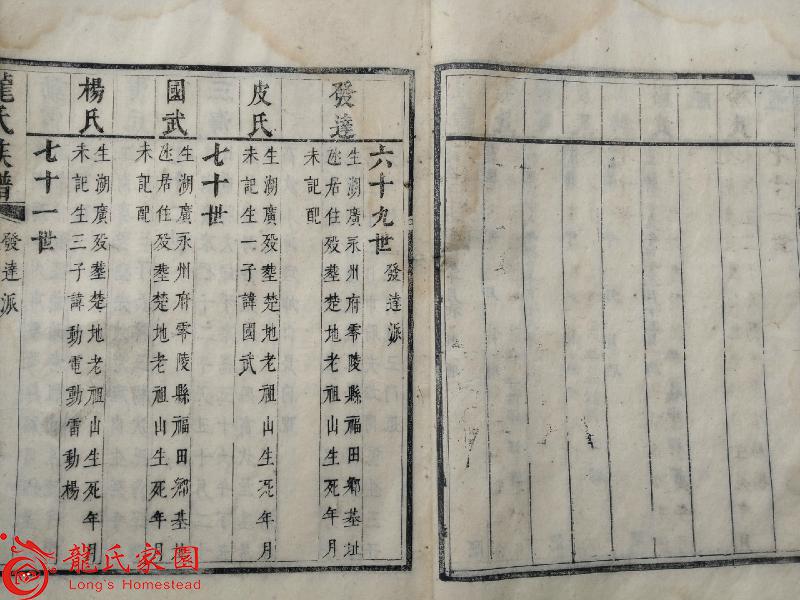 六十九世 發達派
發達
生湖廣永州府零陵縣福田鄉基址
迯居住歿塟楚地老祖山生死年月
未記配
皮氏
生湖廣歿塟楚地老祖山生死年月
未記生一子諱國武
七十世
國武
生湖廣永州府零陵縣福田鄉基址
迯居住歿塟楚地老祖山生死年月
未記配
楊氏
生湖廣歿塟楚地老祖山生死年月
未記生三子諱動電動雷動楊
七十一世
龍氏族譜 發達派
龍氏家園
Long's Homestead